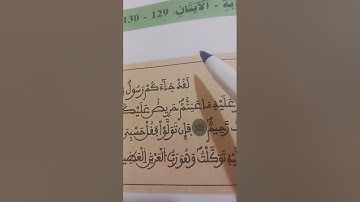 الْآيَتَانِ: 129 - 130
لَقَدْ جَآءَكُمْ رَسُولٌ
عَلَيْهِ مَا عَنِتُّمْ حَرِيصٌ عَلَيْكُ
رَّحِيمٌ فَإِن تَوَلَّوْا فَقُلْ حَسْبِيَ
تَوَكَّلْتُ وَهُوَ رَبُّ الْعَرْشِ الْعَظِي